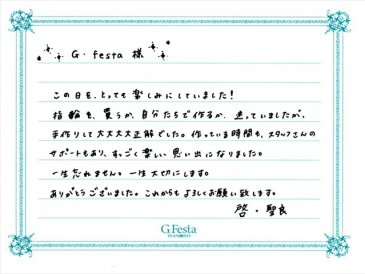 G・festa 様
この日を、とっても楽しみにしていました！
指輪を、買うか、自分たちで作るか、迷っていましたが、
手作りして大大大大正解でした。作っている時間も、スタッフさんの
サポートもあり、すっごく楽しい思い出になりました。
一生忘れません。一生大切にします。
ありがとうございました。これからもよろしくお願い致します。
啓・聖良
G.Festa
DIAMOND